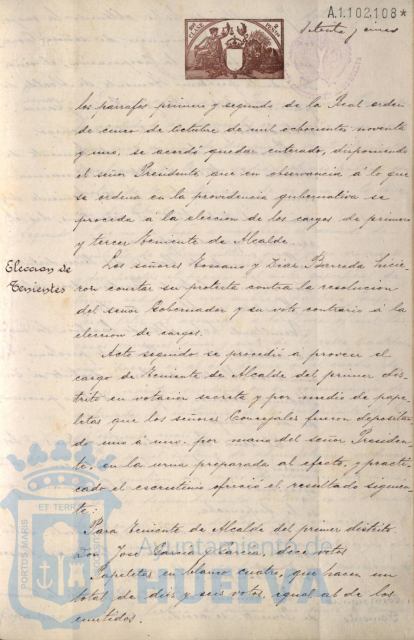 A.1.102,108*
Setenta y nueve
los párrafos primero y segundo de la Real orden
de cinco de Octubre de mil ochocientos noventa
y uno, se acordó quedar enterado, disponiendo
el señor Presidente que en observancia á lo que
se ordena en la providencia gubernativa se
proceda á la elección de los cargos de primero
y tercer Teniente de Alcalde.
Elección de
Tenientes
Los señores Toscano y Diaz Barreda hicie
ron constar su protesta contra la resolución
del señor Gobernador y su voto contrario á la
elección de cargos.
Acto segundo se procedió a proveer el
cargo de Teniente de Alcalde del primer dis
trito en votación secreta y por medio de pape
letas que los señores Concejales fueron depositan
do uno á uno por mano del señor Presiden
te, en la urna preparada al efecto, y practi
cado el escrutinio ofreció el resultado siguien
te:
Para Teniente de Alcalde del primer distrito
Don José García y García, doce votos
Papeletas en blanco cuatro, que hacen un
total de diez y seis votos, igual al de los
emitidos.
PORTUS MARIS
ET TERRAE
Ayuntamiento de
HUELVA